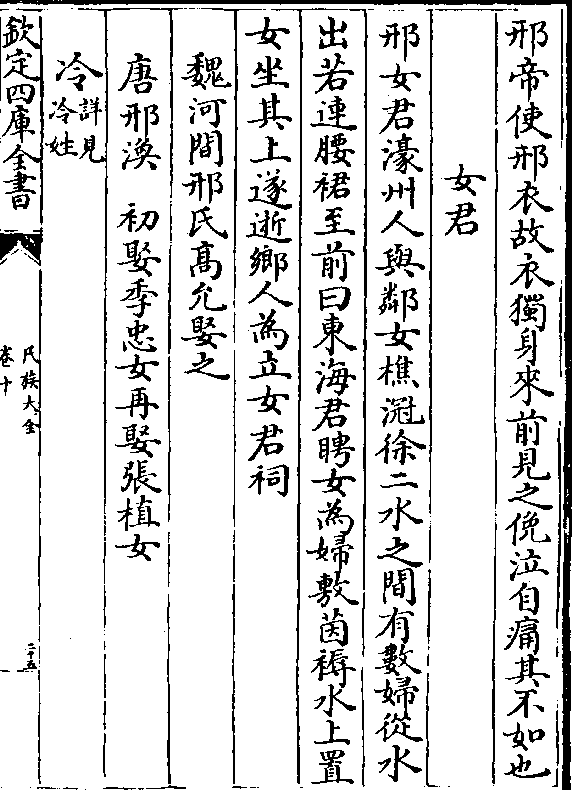 邢帝使邢衣故衣獨身來前見之俛泣自痛其不如也
女君
邢女君濠州人與鄰女樵㵽徐二水之間有數婦從水
出若連腰裙至前曰東海君聘女為婦敷茵褥水上置
女坐其上遂逝鄉人為立女君祠
魏河間邢氏髙允娶之
唐邢渙 初娶季忠女再娶張植女
冷詳見冷姓
欽定四庫全書
氏族大全
卷十
二十五